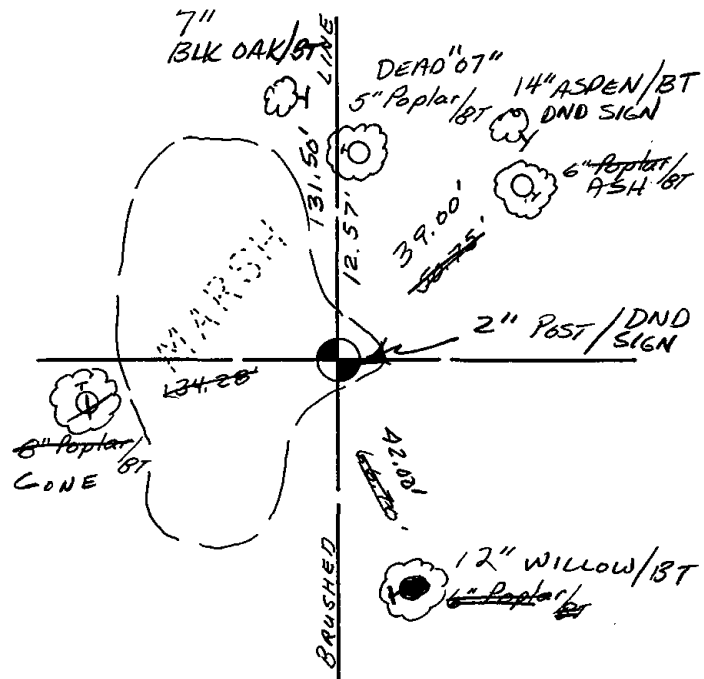 7"
BLK OAK/BT
LINE
DEAD "07"
5" Poplar/BT
14" ASPEN/BT
DND SIGN
6" Poplar/
ASH/BT
131.50'
12.57'
39.00'
50.75'
MARSH
2" POST/DND
SIGN
134.28'
8" Poplar/
BT
GONE
42.00'
BRUSHED
12" WILLOW/BT
6" Poplar/
BT